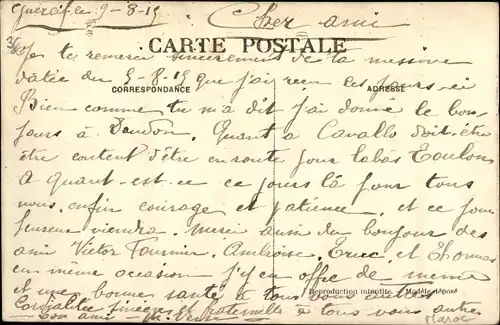 Guercif le 9-8-19
Cher ami
CARTE POSTALE
CORRESPONDANCE
ADRESSE
Je te remerci sincerement de ta missive
datée du 5-8-19 que j'ai reçu ces jours-ci
Bien comme tu m'a dit j'ai donné le bon-
jours à Quant à Cavallo doit-être
être content d'être en route pour labas Toulon
A quant-est-ce ce jours là pour tous
nous, enfin courage et patience, et ce jour
heureux viendra. Merci aussi du bonjour des
ami Victor Fournier, Ambroise, et Thomas
en même occasion j'y en offre de meme
et une bonne santé à tous vous autres
Reproduction interdite. Modèle déposé
Cordialités sincères et fraternelle à tous vous autres
Ton ami
Maroc